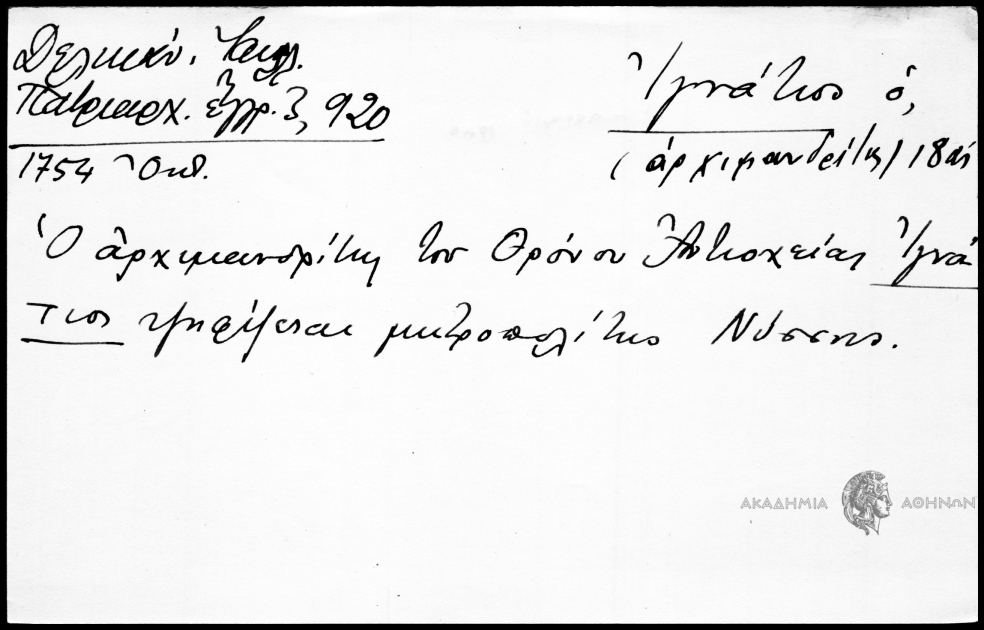 Δελικάν. Ἐκκλ.
Πατριαρχ. ἔγγρ. 3, 920
1754 Ὀκτ.
Ἰγνάτιος ὁ,
(ἀρχιμανδρίτης) 18 αἰ
Ὁ ἀρχιμανδρίτης τοῦ Θρόνου Ἀντιοχείας Ἰγνά
τιος ψηφίζεται μητροπολίτης Νύσσης.
ΑΚΑΔΗΜΙΑ ΑΘΗΝΩΝ